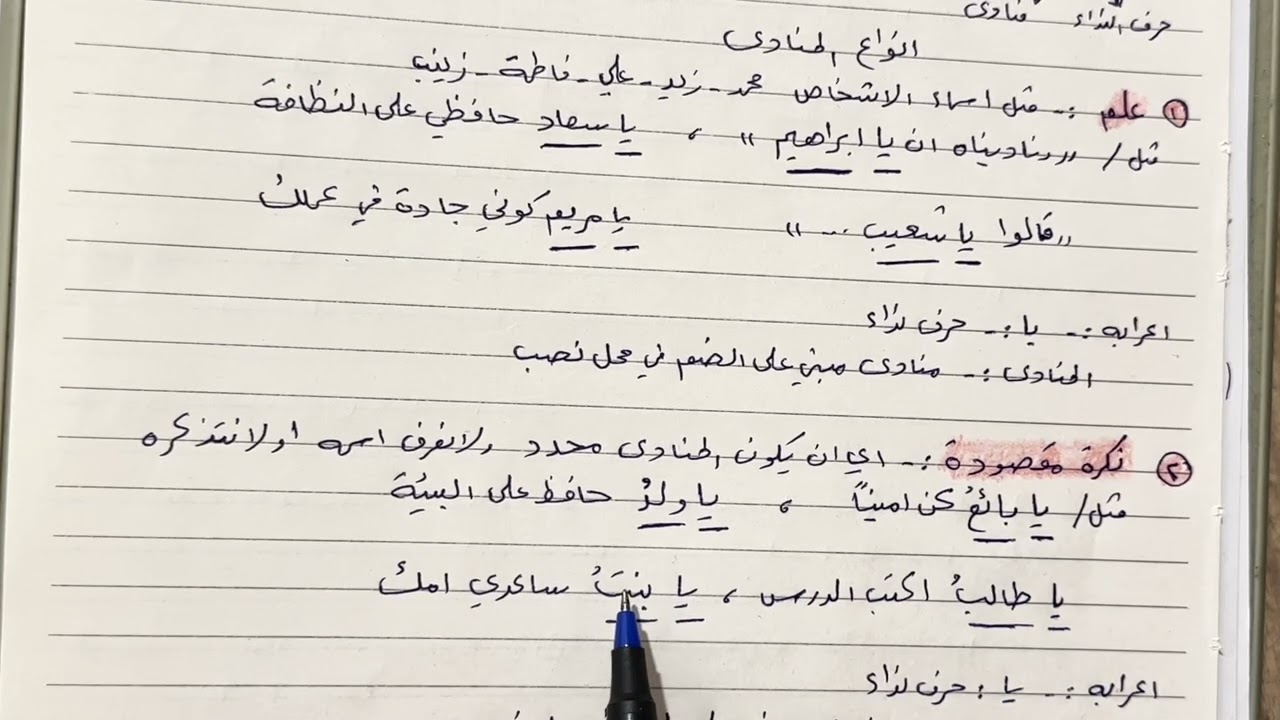 حرف النداء منادى
انواع المنادى
١ علم :- مثل اسماء الاشخاص محمد - زيد - علي - فاطمة - زينب
مثل / ,, وناديناه ان يا ابراهيم ,, ، يا سعاد حافظي على النظافة
,, قالوا يا شعيب ... ,, يا مريم كوني جادة في عملك
اعرابه :- يا :- حرف نداء
المنادى :- منادى مبني على الضم في محل نصب
٢ نكرة مقصودة :- اي ان يكون المنادى محدد ولانعرف اسمه او لا نتذكره
مثل / يا بائعُ كن اميناً ، يا ولدُ حافظ على البيئة
يا طالبُ اكتب الدرس ، يا بنتُ ساعدي امك
اعرابه :- يا : حرف نداء